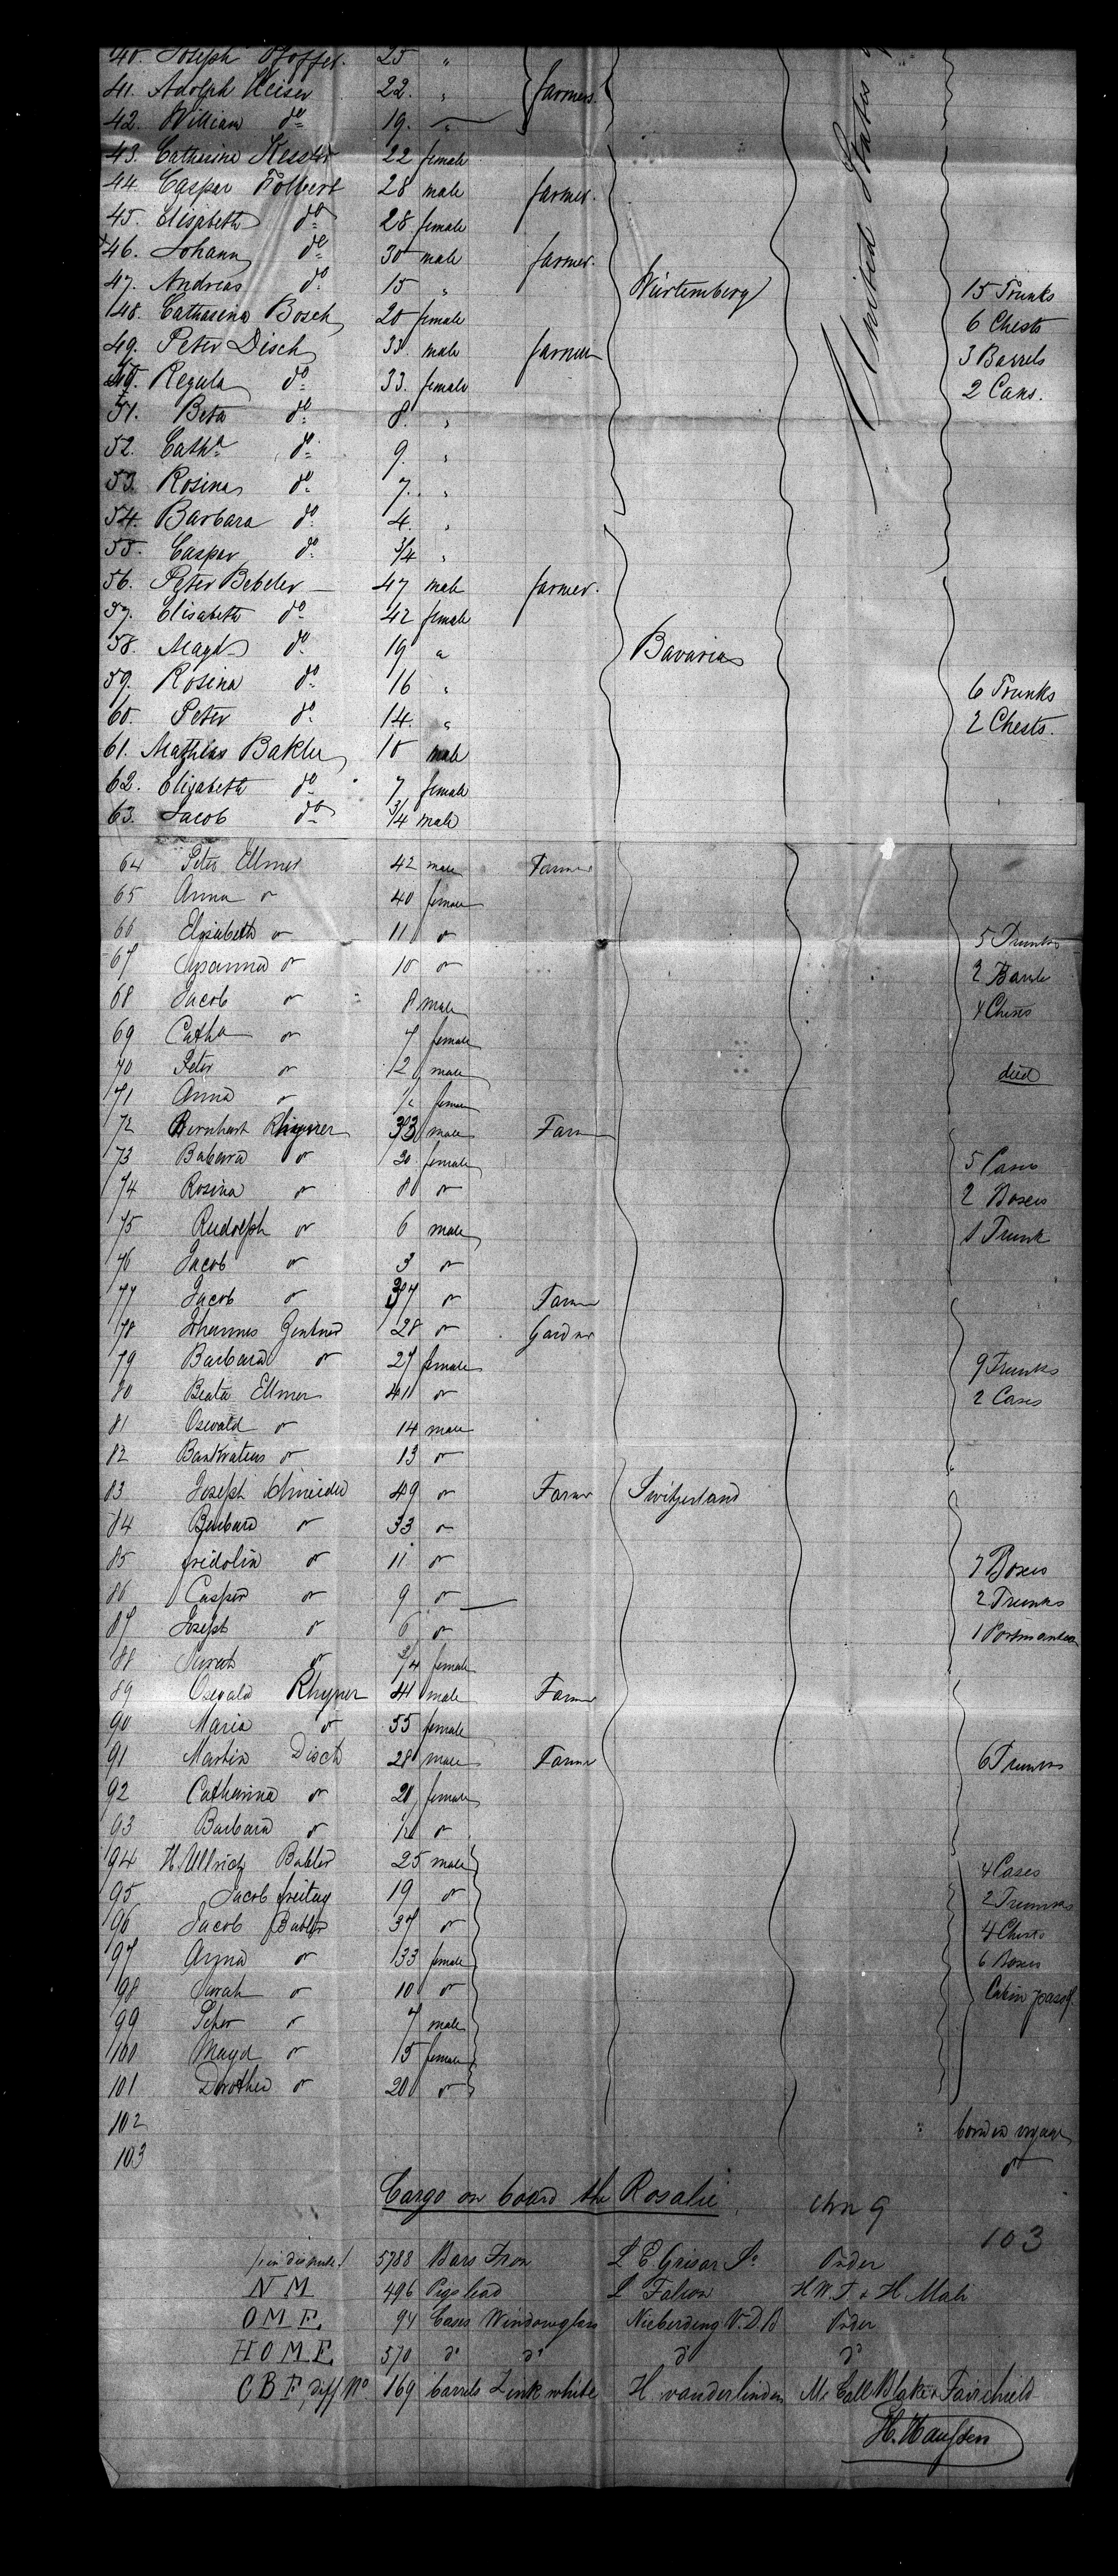 40. Joseph 25 "
41. Adolph Keiser 22. " farmers.
42. William do 19. "
43. Catharina Kessler 22 female
44. Caspar Folbert 28 male farmer.
45. Elisabeth do 28 female
46. Johann do 30 male farmer.
47. Andreas do 15 " Würtemberg 15 Trunks
48. Catharina Bosch 20 female 6 Chests
49. Peter Disch 33 male farmer 3 Barrels
Regula do 33. female 2 Cans.
51. Beta do 8. "
52. Catha do 9. "
53. Rosina do 7. "
54. Barbara do 4. "
55. Caspar do 3/4 "
56. Peter Bebeler 47 male farmer.
57. Elisabeth do 42 female
58. Magd do 19 " Bavaria
59. Rosina do 16 " 6 Trunks
60. Peter do 14. " 2 Chests.
61. Mathias Bakler 10 male
62. Elizabeth do 7 female
63. Jacob do 3/4 male
United States
64 Peter Ellmer 42 male Farmer
65 Anna do 40 female
66 Elisabeth do 11 do 5 Trunks
67 Susanna do 10 do 2
68 Jacob do 8 male 4 Chests
69 Catha do 7 female
70 Peter do 2 male died
71 Anna do female
72 Bernhart Rhyner 33 male Farmer
73 Babara do 30 female 5 Cases
74 Rosina do 8 do 2 Boxes
75 Rudolph do 6 male 1 Trunk
76 Jacob do 3 do
77 Jacob do 37 do Farmer
78 Johannes Zentner 28 do Gardner
79 Barbara do 27 female 9 Trunks
80 Beata Ellmer 41 do 2 Cases
81 Oswald do 14 male
82 Bankratius do 13 do
83 Joseph Schneider 49 do Farmer Switzerland
84 Barbara do 33 do
85 fridolin do 11 do 7 Boxes
86 Casper do 9 do 2 Trunks
87 Joseph do 6 do 1 Portmanteau
88 Sarah do 3/4 female
89 Oswald Rhyner 41 male Farmer
90 Maria do 55 female
91 Martin Disch 28 male Farmer 6 Trunks
92 Catharina do 28 female
93 Barbara do do
94 H. Ullrich Babler 25 male 4 Cases
95 Jacob freitag 19 do 2 Trunks
96 Jacob Babler 37 do 4 Chests
97 Anna do 33 female 6 Boxes
98 Sarah do 10 do Cabin pass.
99 Peter do 7 male
100 Magd do 15 female
101 Dorothea do 20 do
102 born on voyage
103 do
Cargo on board the Rosalie
103
/1 in dispute/ 5788 Bars Iron L E. Grisar Order
N M 496 Pigs lead L Falcon H W. T. & H Mali
O M E. 94 Cases Windowglass Nieberding V. D. B Order
H O M E. 570 do do do do
C B F, diff. No 169 barrels Zink white H vanderlinden Mc Call Blake & Fairchield
H. Haussen